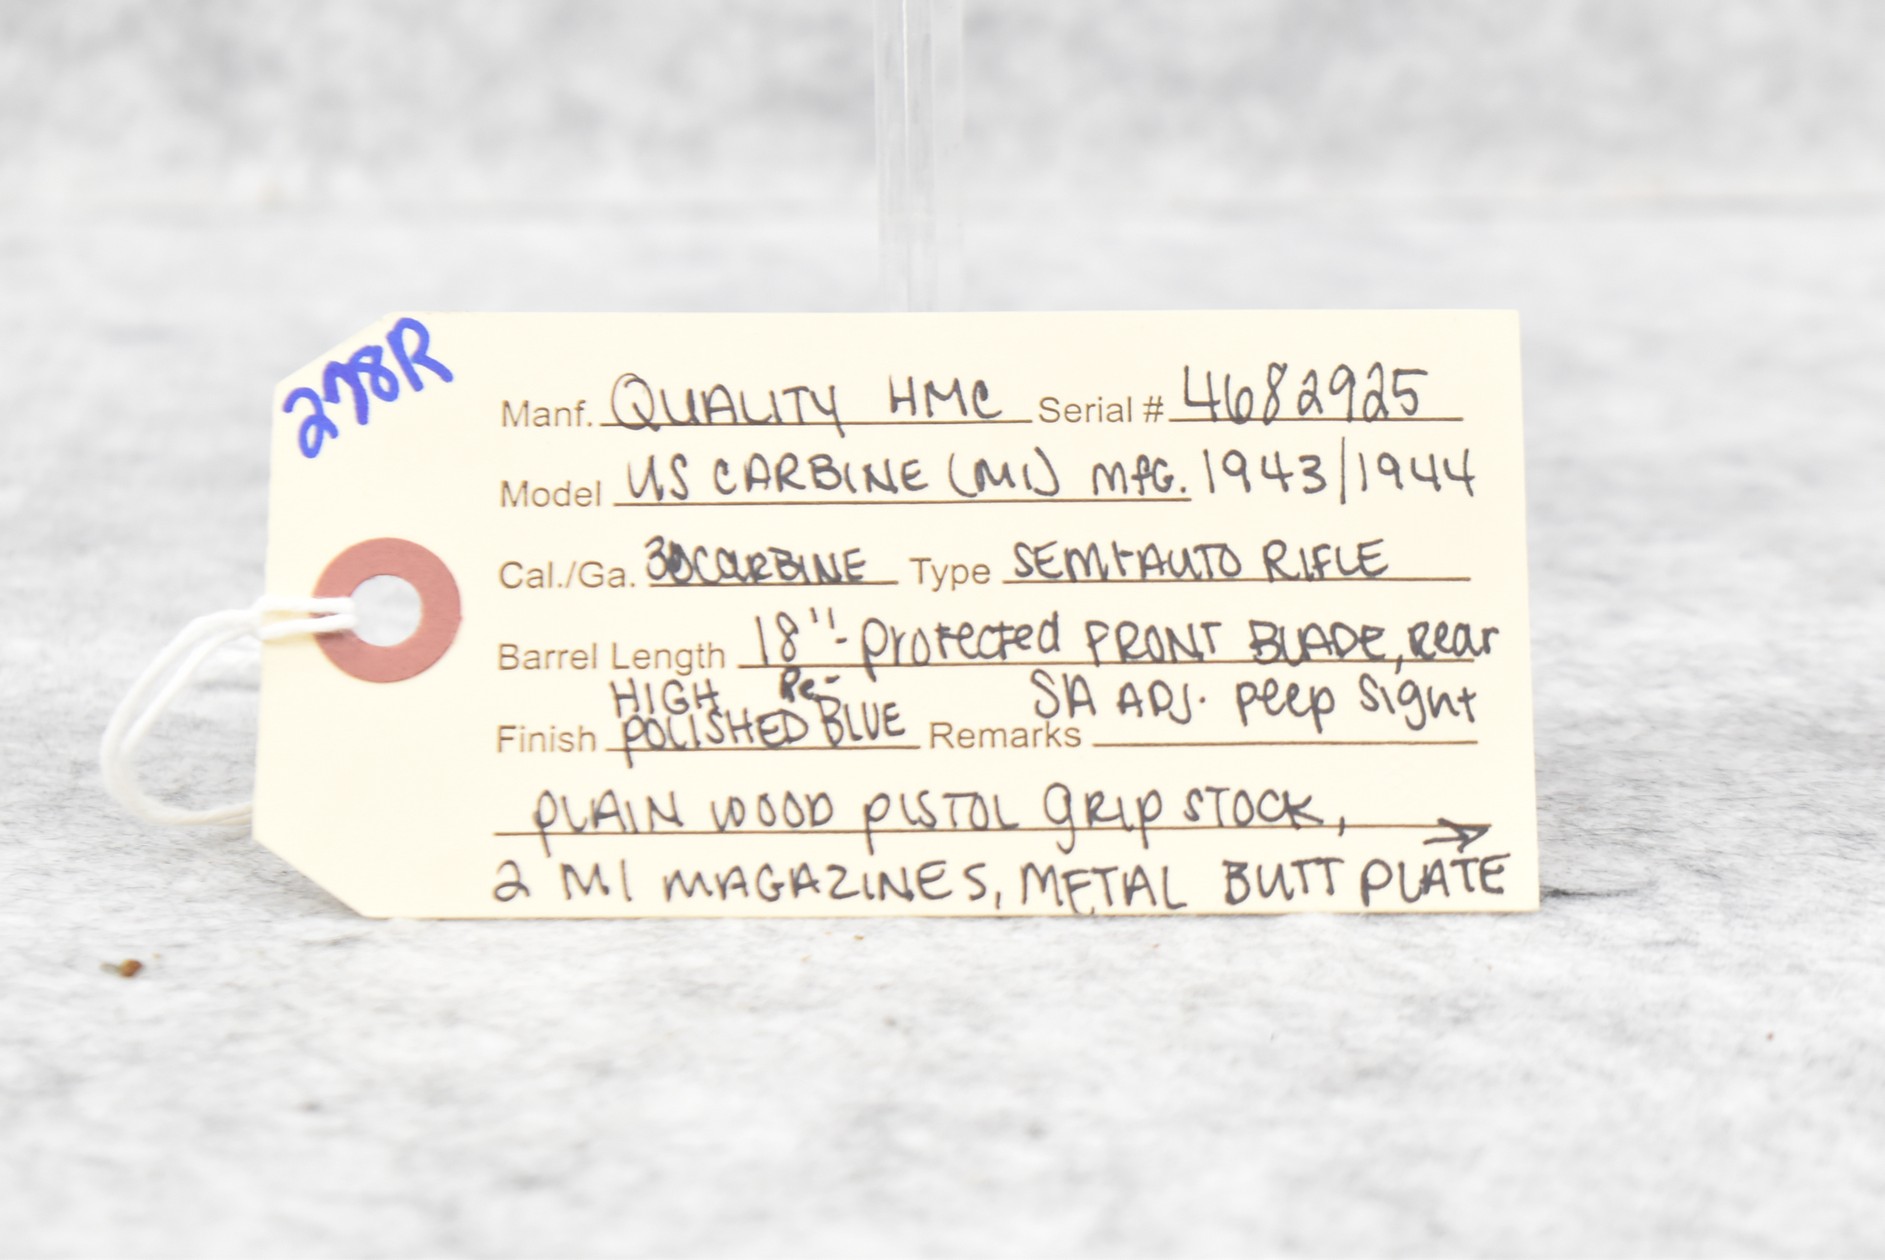 278R
Manf. QUALITY HMC Serial # 4682925
Model US CARBINE (M1) MFG. 1943/1944
Cal./Ga. 30 CARBINE Type SEMI-AUTO RIFLE
Barrel Length 18"- Protected FRONT BLADE, Rear
SA ADJ. Peep Sight
Finish HIGH POLISHED Re-BLUE Remarks
PLAIN WOOD PISTOL GRIP STOCK, →
2 M1 MAGAZINES, METAL BUTT PLATE